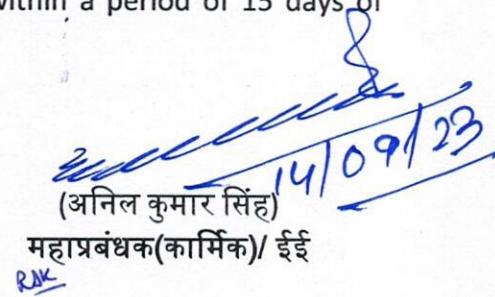 within a period of 15 days of
14/09/23
(अनिल कुमार सिंह)
महाप्रबंधक(कार्मिक)/ ईई
RSK